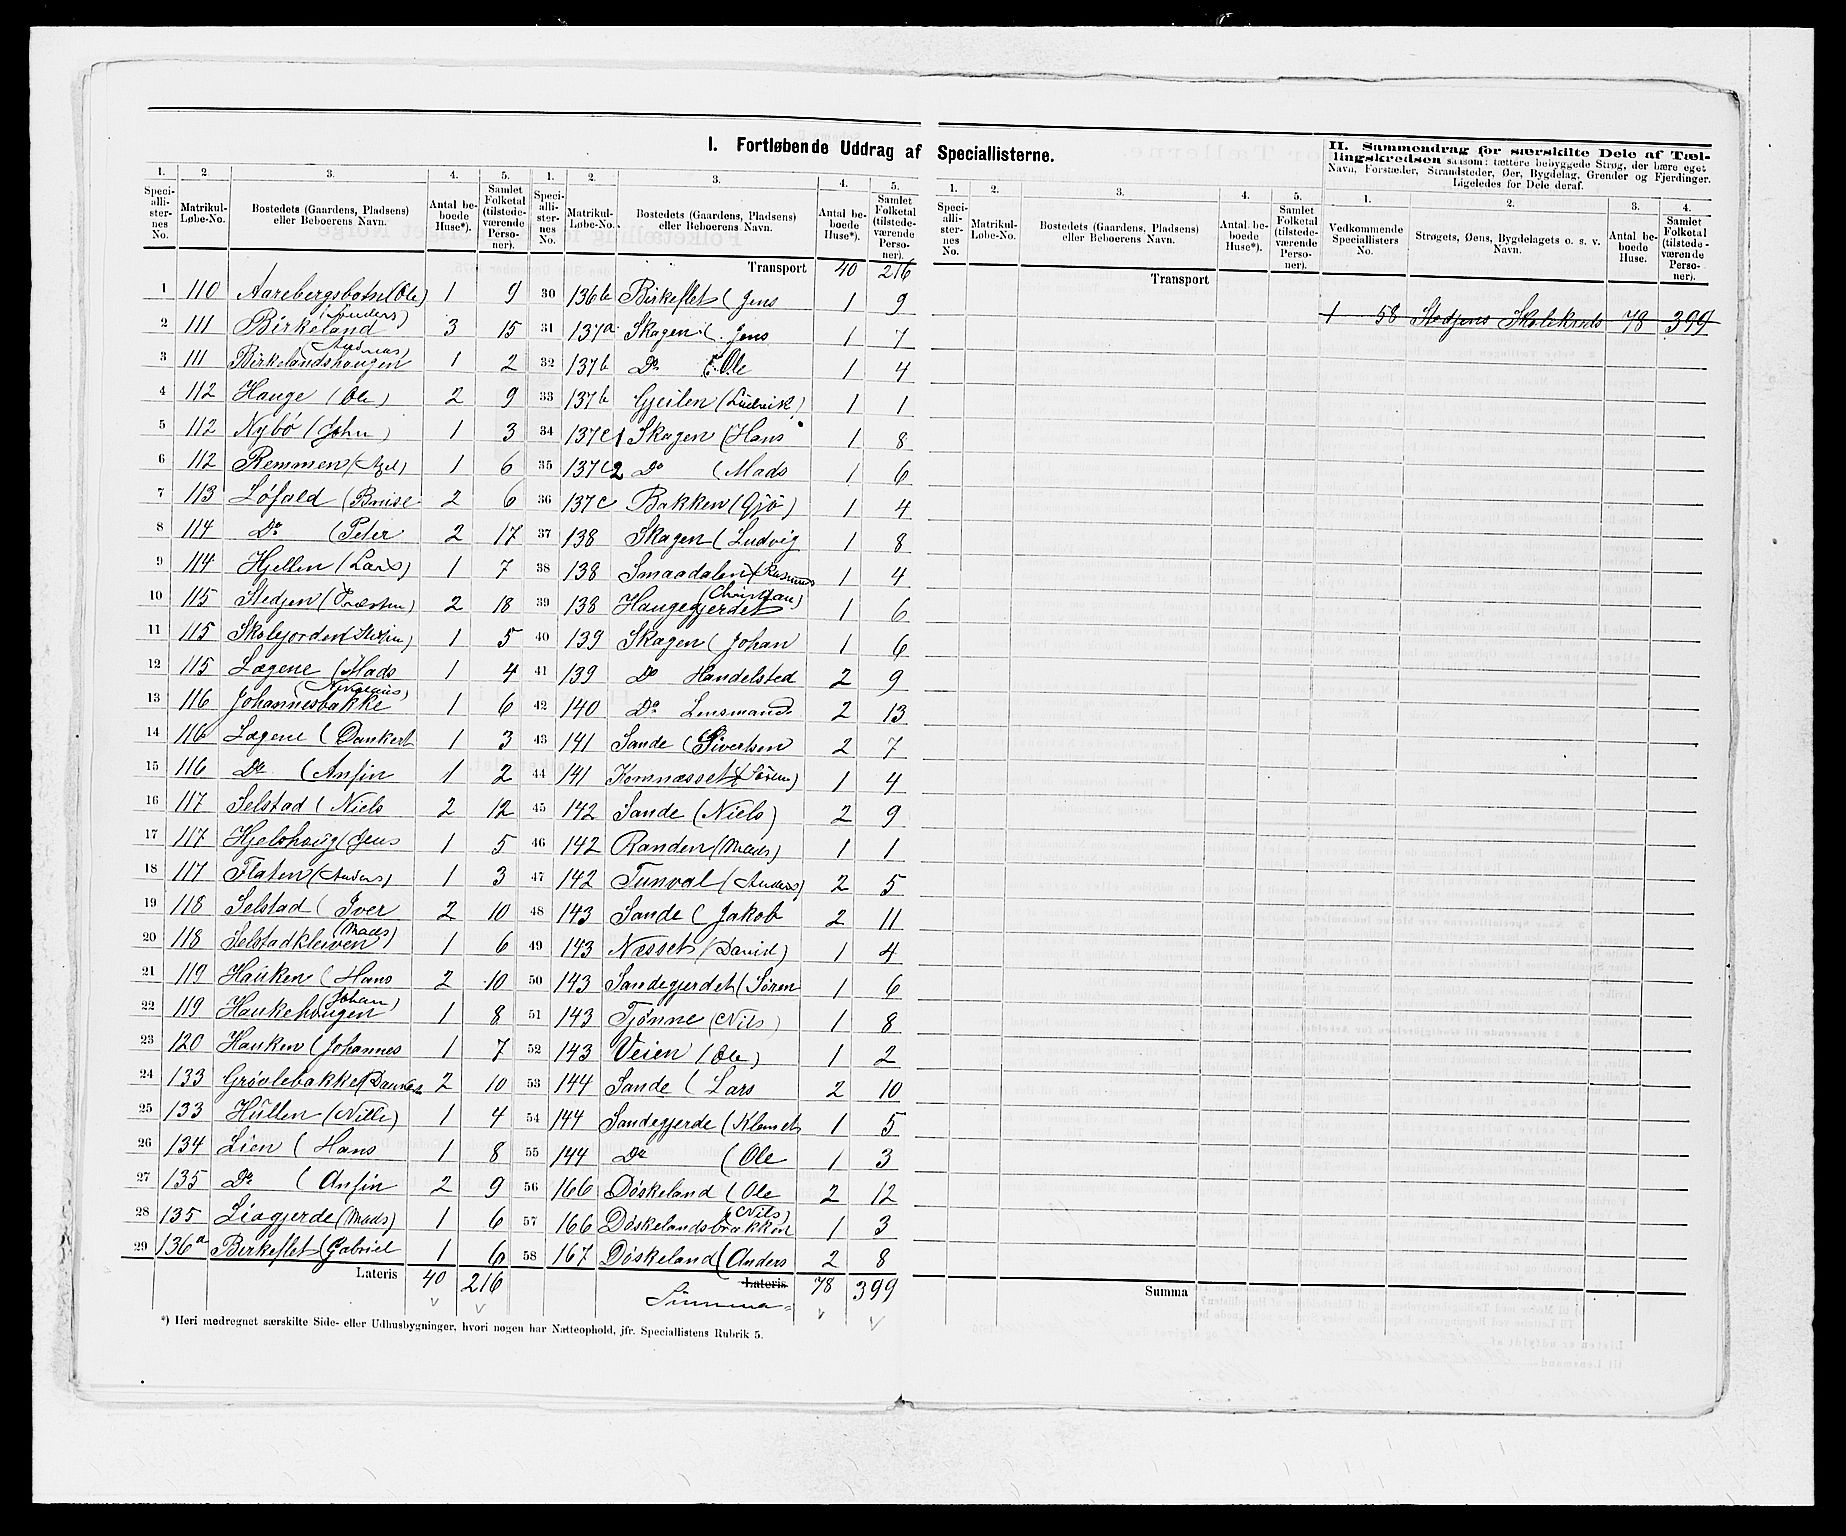 I. Fortløbende Uddrag af Speciallisterne.
II. Sammendrag for særskilte Dele af Tællingskredsen saasom: tættere bebyggede Strøg, der bære eget Navn, Forstæder, Strandsteder, Øer, Bygdelag, Grender og Fjerdinger. Ligeledes for Dele deraf.
1. 2. 3. 4. 5.
Speciallisternes No. Matrikul-Løbe-No. Bostedets (Gaardens, Pladsens) eller Beboerens Navn. Antal beboede Huse*). Samlet Folketal (tilstedeværende Personer).
1 110 Aarebergsbotn (Ole) 1 9
2 111 Birkeland (Anders) 3 15
3 111 Birkelandshaugen (Andreas) 1 2
4 112 Hauge (Ole) 2 9
5 112 Nybö (John) 1 3
6 112 Remmen (Axel) 1 6
7 113 Löfald 2 6
8 114 Do (Peter 2 17
9 114 Hjellen (Lars) 1 7
10 115 Stedjen 2 18
11 115 Skolejorden 1 5
12 115 Lægene (Mads 1 4
13 116 Johannesbakke 1 6
14 116 Lægene (Dankert 1 3
15 116 Do (Anfin 1 2
16 117 Selstad (Niels 2 12
17 117 Hjelshoug (Jens 1 5
18 117 Flaten (Anders) 1 3
19 118 Selstad (Iver 2 10
20 118 Selstadkleiven (Mads) 1 6
21 119 Hauken (Hans 2 10
22 119 Haukehougen (Johan) 1 8
23 120 Hauken (Johannes 1 7
24 133 Grövlebakke 2 10
25 133 Hullen (Nille) 1 4
26 134 Lien (Hans 1 8
27 135 Do (Anfin 2 9
28 135 Liagjerde (Mads) 1 6
29 136a Birkeflet (Gabriel 1 6
Lateris 40 216
1. 2. 3. 4. 5.
Speciallisternes No. Matrikul-Løbe-No. Bostedets (Gaardens, Pladsens) eller Beboerens Navn. Antal beboede Huse*). Samlet Folketal (tilstedeværende Personer).
Transport 40 216
30 136b Birkeflet (Jens 1 9
31 137a Skagen (Jens 1 7
32 137b Do (Ole 1 4
33 137b Gjeilen (Ludvik) 1 1
34 137c1 Skagen (Hans 1 8
35 137c2 Do (Mads 1 6
36 137c Bakken (Gjö) 1 4
37 138 Skagen (Ludvig 1 8
38 138 Smaadalen (Rasmus 1 4
39 138 Haugegjerdet (Christian) 1 6
40 139 Skagen (Johan 1 6
41 139 Do Handelsted 2 9
42 140 Do Lensmand 2 13
43 141 Sande (Sivertsen 2 7
44 141 Kornnæsset (Sören) 1 4
45 142 Sande (Niels) 2 9
46 142 Randen (Mads) 1 1
47 142 Tunval (Anders) 2 5
48 143 Sande (Jakob 2 11
49 143 Næsset (David) 1 4
50 143 Sandegjerdet (Sören 1 6
51 143 Tjönne (Nils) 1 8
52 143 Veien (Ole) 1 2
53 144 Sande (Lars 2 10
54 144 Sandegjerde (Klemet 1 5
55 144 Do (Ole 1 3
56 166 Döskeland (Ole 2 12
57 166 Döskelandsbrækken (Nils) 1 3
58 167 Döskeland (Anders 2 8
Lateris 78 399
Summa
*) Heri medregnet særskilte Side- eller Udhusbygninger, hvori nogen har Natteophold, jfr. Speciallistens Rubrik 5.
1. 2. 3. 4. 5.
Speciallisternes No. Matrikul-Løbe-No. Bostedets (Gaardens, Pladsens) eller Beboerens Navn. Antal beboede Huse*). Samlet Folketal (tilstedeværende Personer).
Transport
Summa
1. 2. 3. 4.
Vedkommende Speciallisters No. Strøgets, Øens, Bygdelagets o. s. v. Navn. Antal beboede Huse. Samlet Folketal (tilstedeværende Personer).
1 58 Stedjens Skolekreds 78 399